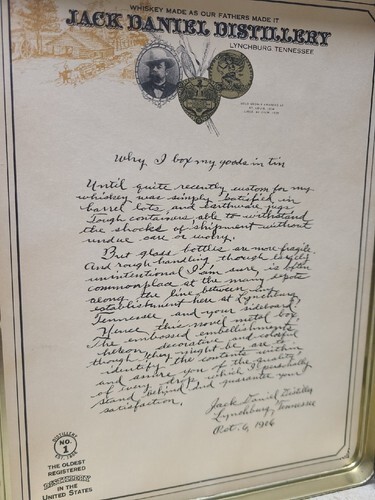 WHISKEY MADE AS OUR FATHERS MADE IT
JACK DANIEL DISTILLERY
LYNCHBURG, TENNESSEE
Why I box my goods in tin
Until quite recently, custom for my
whiskey was simply satisfied in
barrel lots and earthware jugs
Tough containers, able to withstand
the shocks of shipment without
undue care or worry.
But glass bottles are more fragile
And rough handling though largely
unintentional I am sure, is often
commonplace at the many
along the line between my
establishment here at Lynchburg,
Tennessee, and your sideboard.
Hence, this novel metal box.
The embossed embellishments
hereon, decorative and colorful
though they might be, are to
identify the contents within
and assure you of the quality
of every drop, which I personally
stand behind and guarantee your
satisfaction.
Jack Daniel Distillery
Lynchburg, Tennessee
Oct. 6, 1916
DISTILLERY
NO.
1
THE OLDEST
REGISTERED
IN THE
UNITED STATES